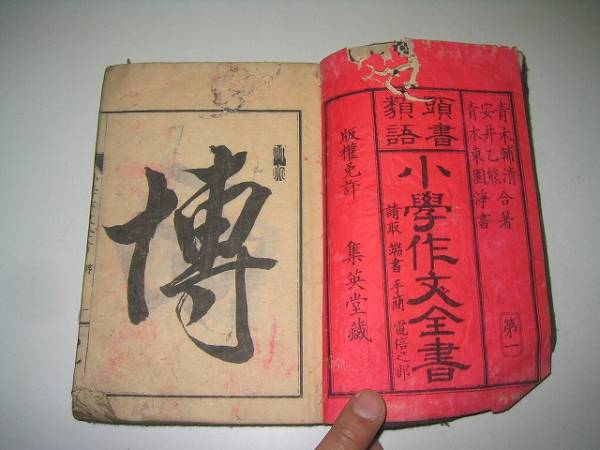 青木輔清 合著
安井乙熊
青木東園淨書
頭書
類語
小學作文全書
第一
請取 端書 手簡 電信之部
版權免許
集英堂藏
博